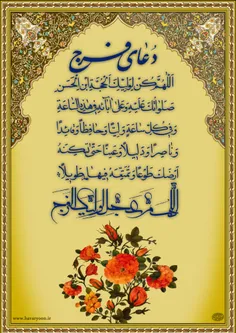 دعای فرج
اللهم کن لولیک الحجة ابن الحسن
صلواتک علیه و علی آبائه فی هذه الساعة
و فی کل ساعة ولیا و حافظا و قائدا
و ناصرا و دلیلا و عینا حتی تسکنه
أرضک طوعا و تمتعه فیها طویلا
اللهم عجل لولیک الفرج
www.haramyson.ir